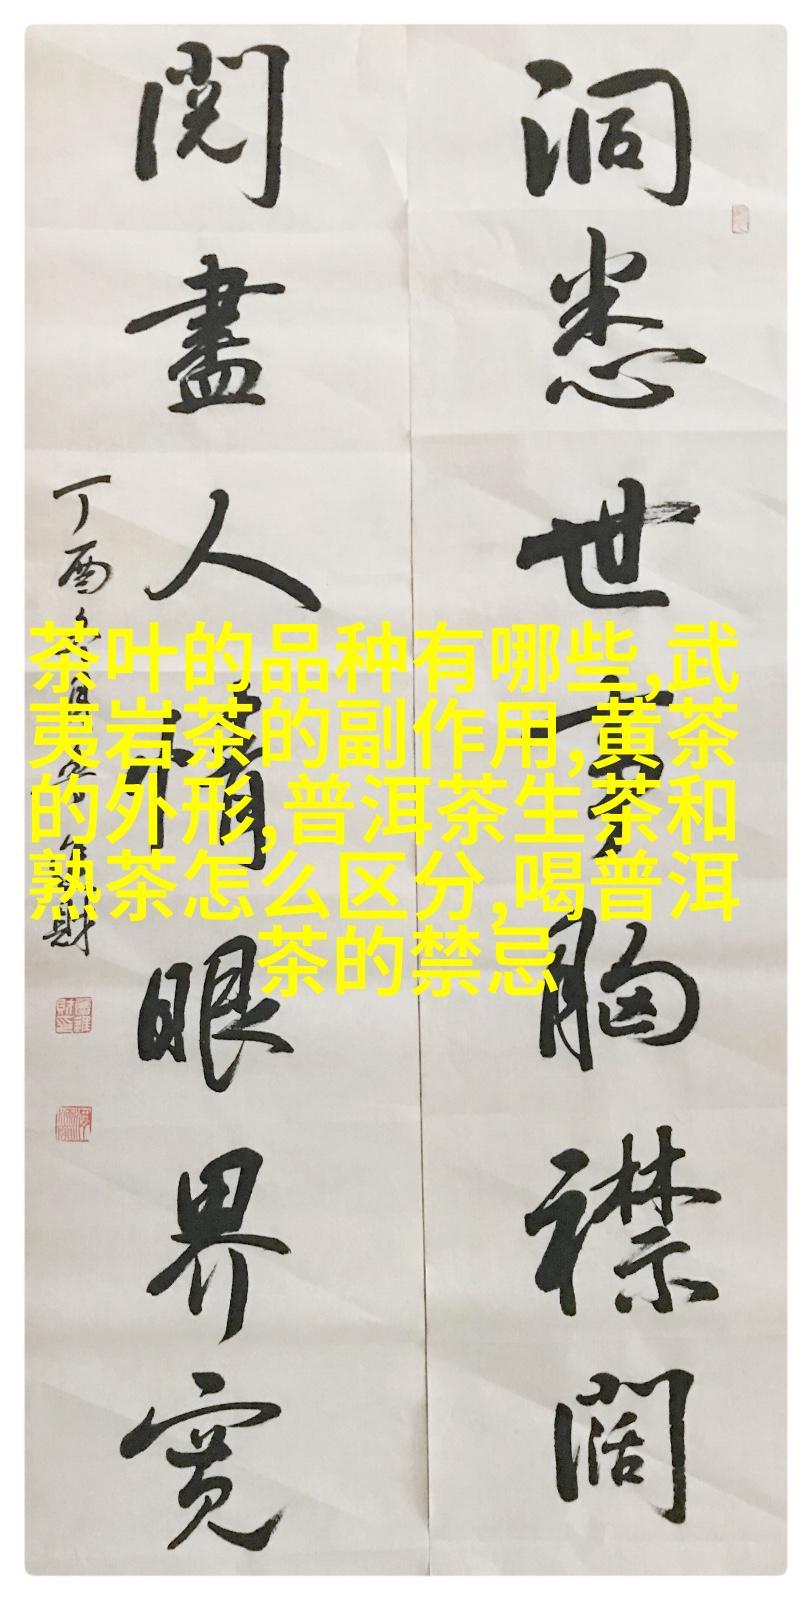 洞悉世事胸襟阔
閱盡人情眼界寬
丁酉
財
茶叶的品种有哪些,武
夷岩茶的副作用,黄茶
的外形,普洱茶生茶和
熟茶怎么区分,喝普洱
茶的禁忌